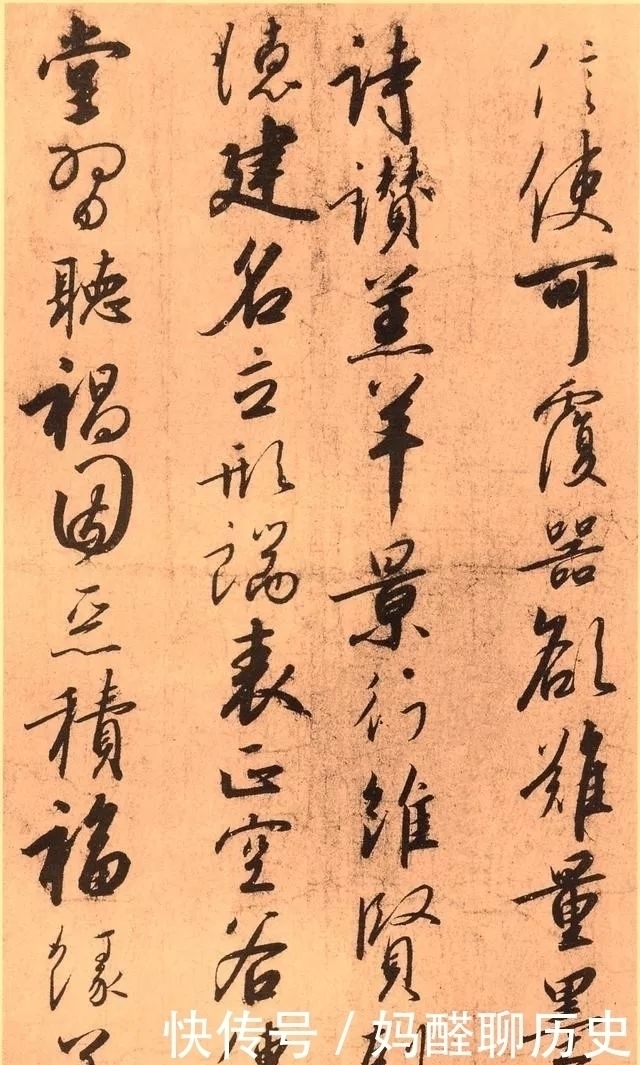 信使可覆器欲難量
詩讚羔羊景行維賢
德建名立形端表正空谷
堂習聽禍因惡積福緣
快传号 / 妈醛聊历史